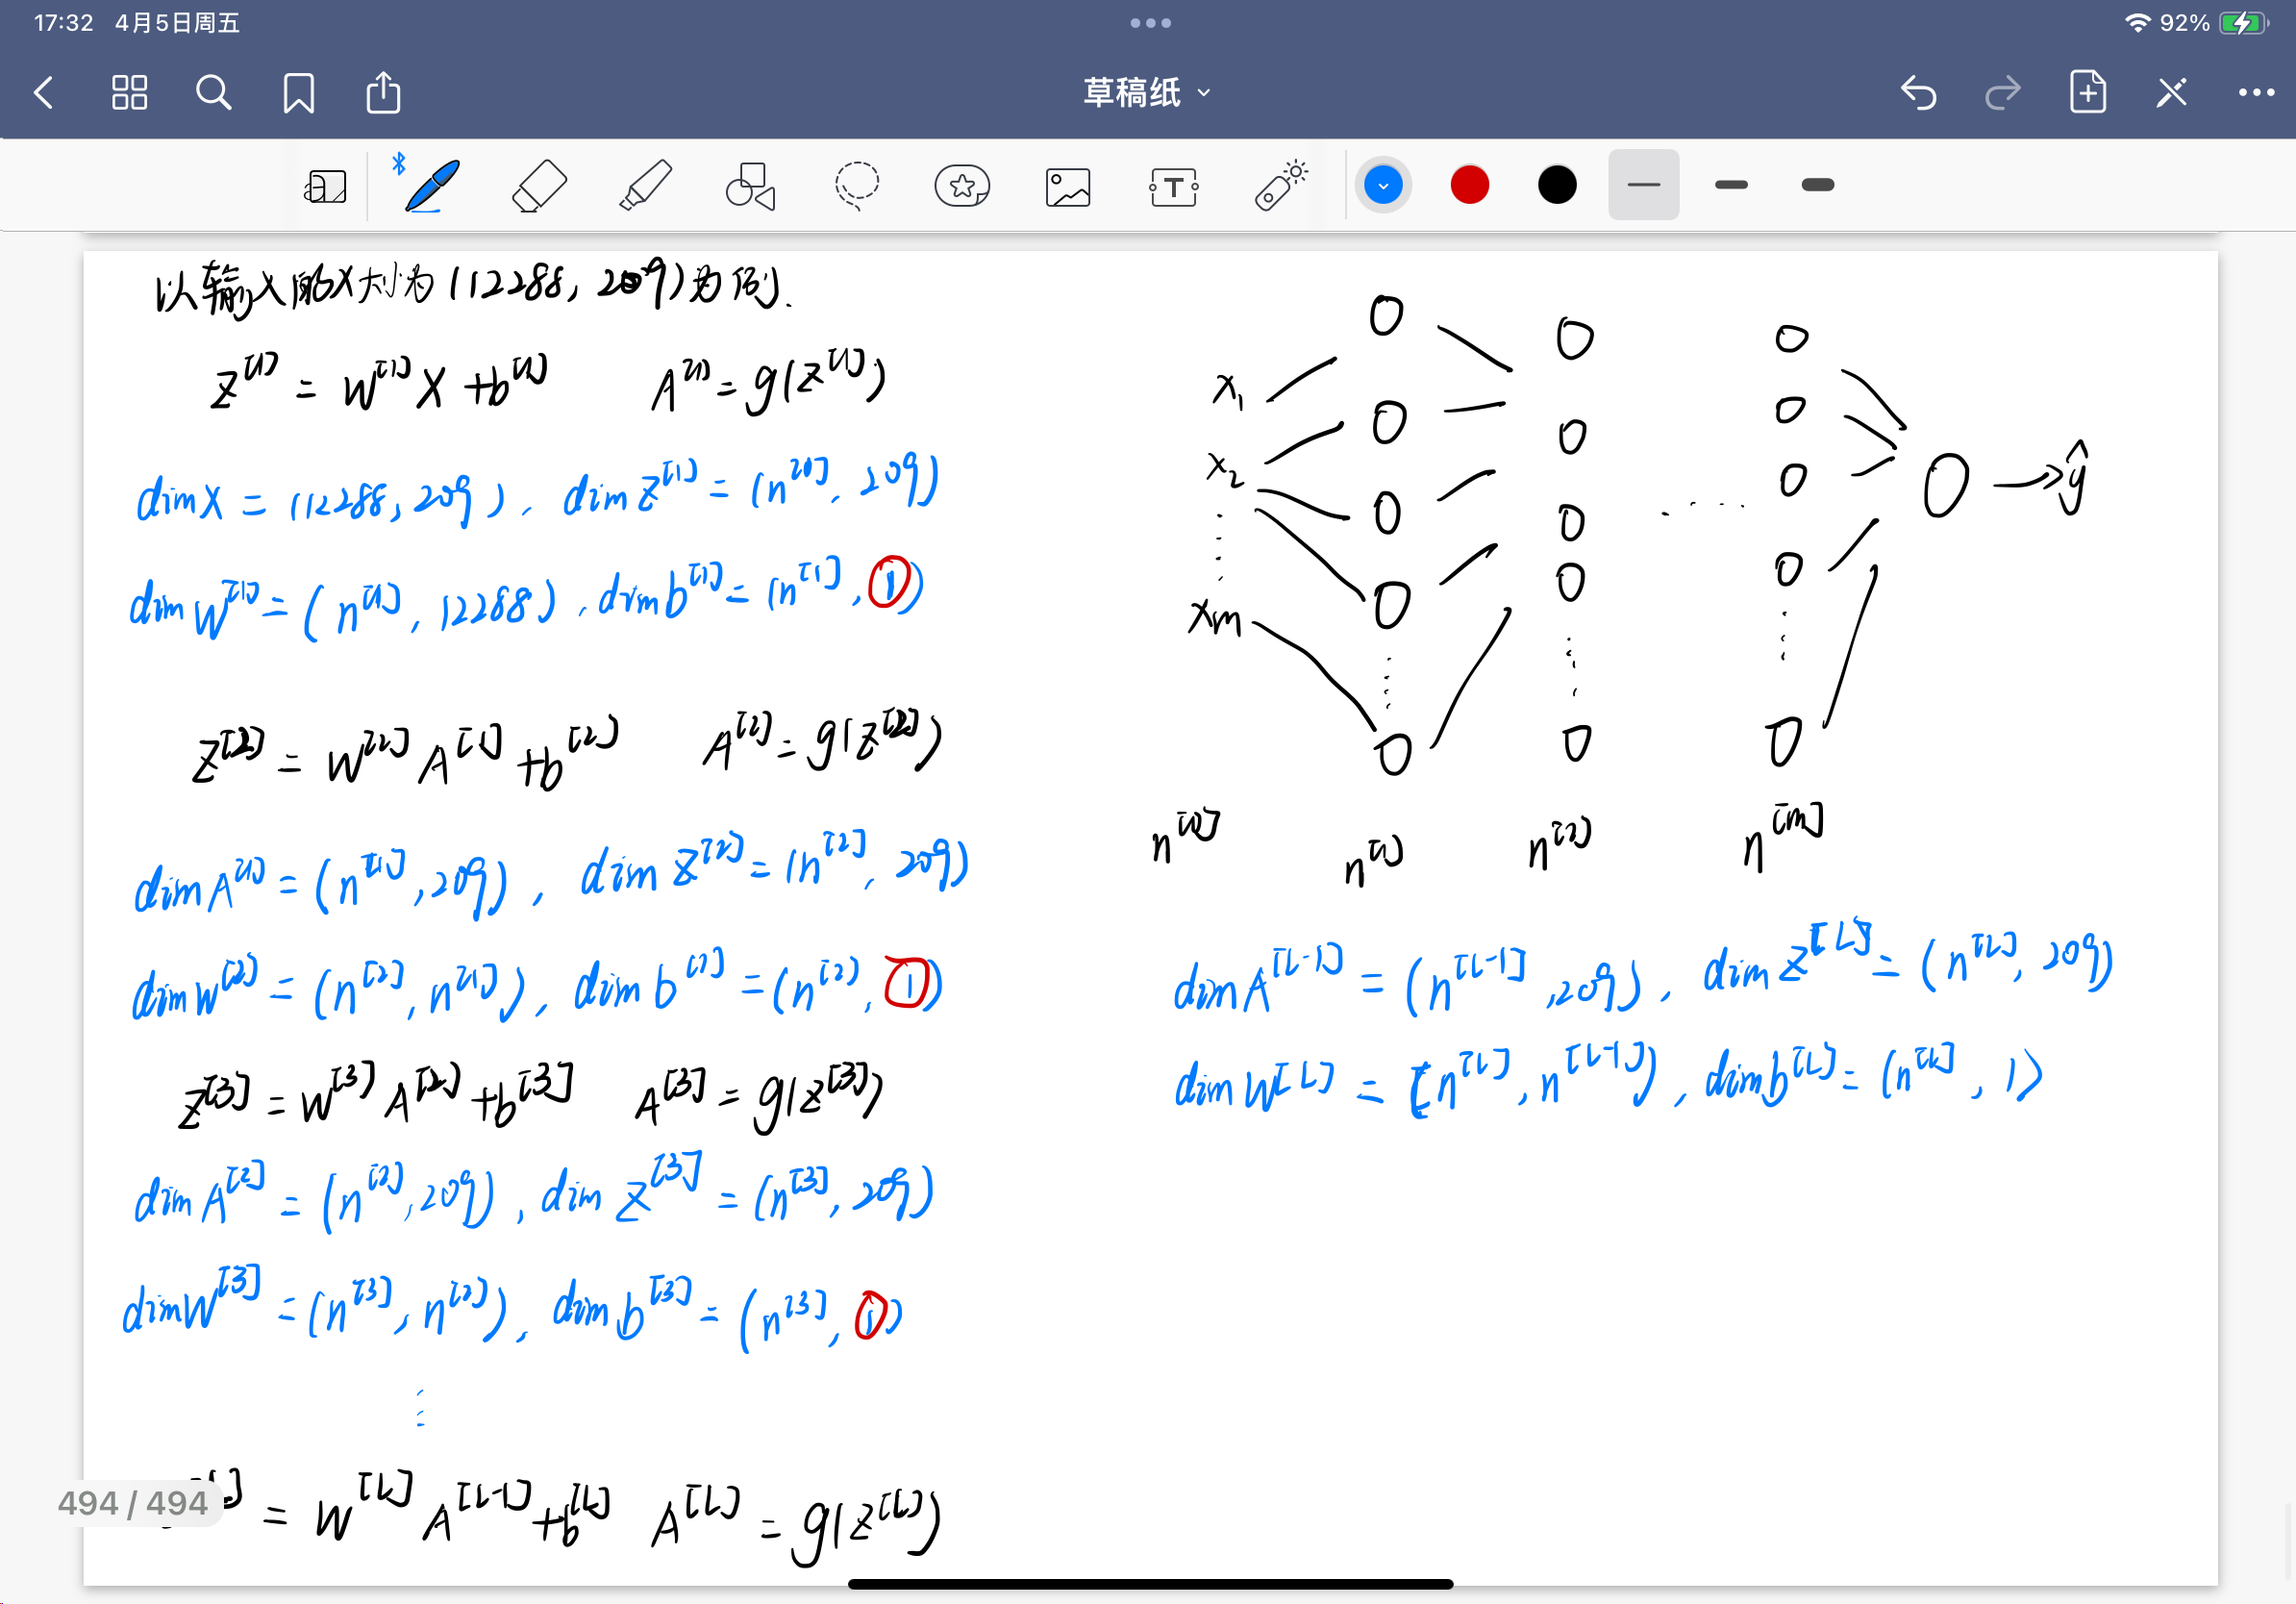 17:32 4月5日周五
92%
草稿纸
以输入的X大小为(12288, 209)为例.
Z^[1] = W^[1] X + b^[1] A^[1] = g(Z^[1])
dim X = (12288, 209), dim Z^[1] = (n^[0], 209)
dim W^[1] = (n^[1], 12288), dim b^[1] = (n^[1], 1)
Z^[2] = W^[2] A^[1] + b^[2] A^[2] = g(Z^[2])
dim A^[1] = (n^[1], 209), dim Z^[2] = (n^[2], 209)
dim W^[2] = (n^[2], n^[1]), dim b^[2] = (n^[2], 1)
Z^[3] = W^[3] A^[2] + b^[3] A^[3] = g(Z^[3])
dim A^[2] = (n^[2], 209), dim Z^[3] = (n^[3], 209)
dim W^[3] = (n^[3], n^[2]), dim b^[3] = (n^[3], 1)
= W^[L] A^[L-1] + b^[L] A^[L] = g(Z^[L])
494 / 494
x₁
x₂
xm
ŷ
n^[0] n^[1] n^[2] n^[m]
dim A^[L-1] = (n^[L-1], 209), dim Z^[L] = (n^[L], 209)
dim W^[L] = [n^[L], n^[L-1]), dim b^[L] = (n^[L], 1)